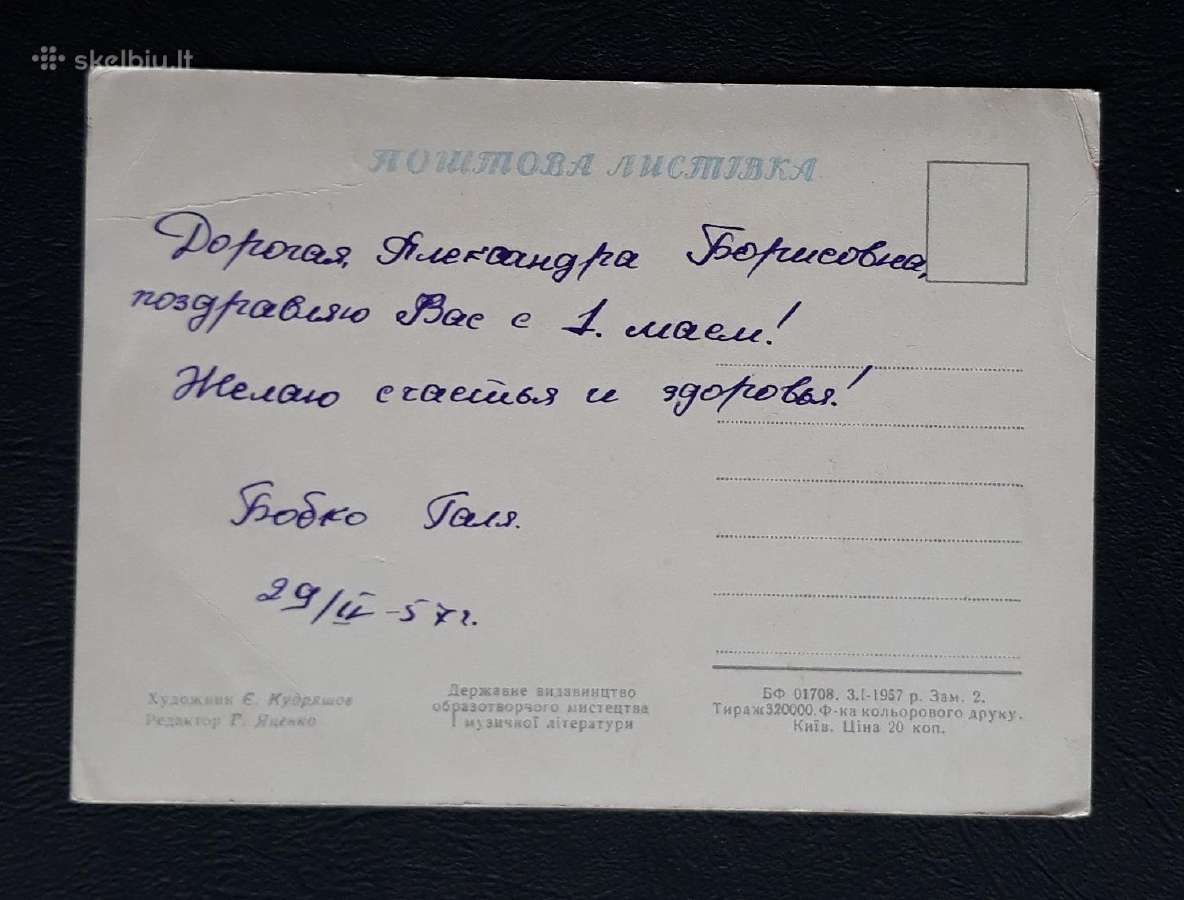 skelbiu.lt
ПОШТОВА ЛИСТІВКА
Дорогая, Александра Борисовна,
поздравляю Вас с 1. маем!
Желаю счастья и здоровья!
Бобко Галя.
29/IV-57г.
Художник Є. Кудряшов
Редактор Г. Яценко
Державне видавництво
образотворчого мистецтва
і музичної літератури
БФ 01708. 3.I-1957 р. Зам. 2.
Тираж 320000. Ф-ка кольорового друку.
Київ. Ціна 20 коп.